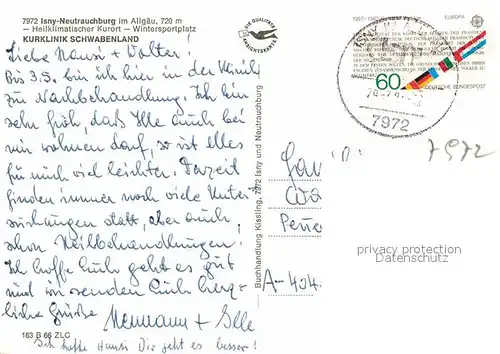 7972 Isny-Neutrauchburg im Allgäu, 720 m
— Heilklimatischer Kurort — Wintersportplatz
KURKLINIK SCHWABENLAND
Liebe Hansi + Walter!
Bis 3.5. bin ich hier in der Klinik
zur Nachbehandlung. Ich bin
sehr froh, daß Ille auch bei
mir wohnen darf, so ist alles
für mich viel leichter. Derzeit
finden immer noch viele Unter
suchungen statt, aber auch
schon Heilbehandlungen.
Ich hoffe Euch geht es gut
und wir senden Euch herz-
liche Grüße Hermann + Ille
163 B 66 ZLC
Ich hoffe Hansi Dir geht es besser!
DIE QUALITÄTS
ANSICHTSKARTE
Buchhandlung Kissling, 7972 Isny und Neutrauchburg
EUROPA
60
DEUTSCHE BUNDESPOST
7972
7972
A-404
privacy protection
Datenschutz